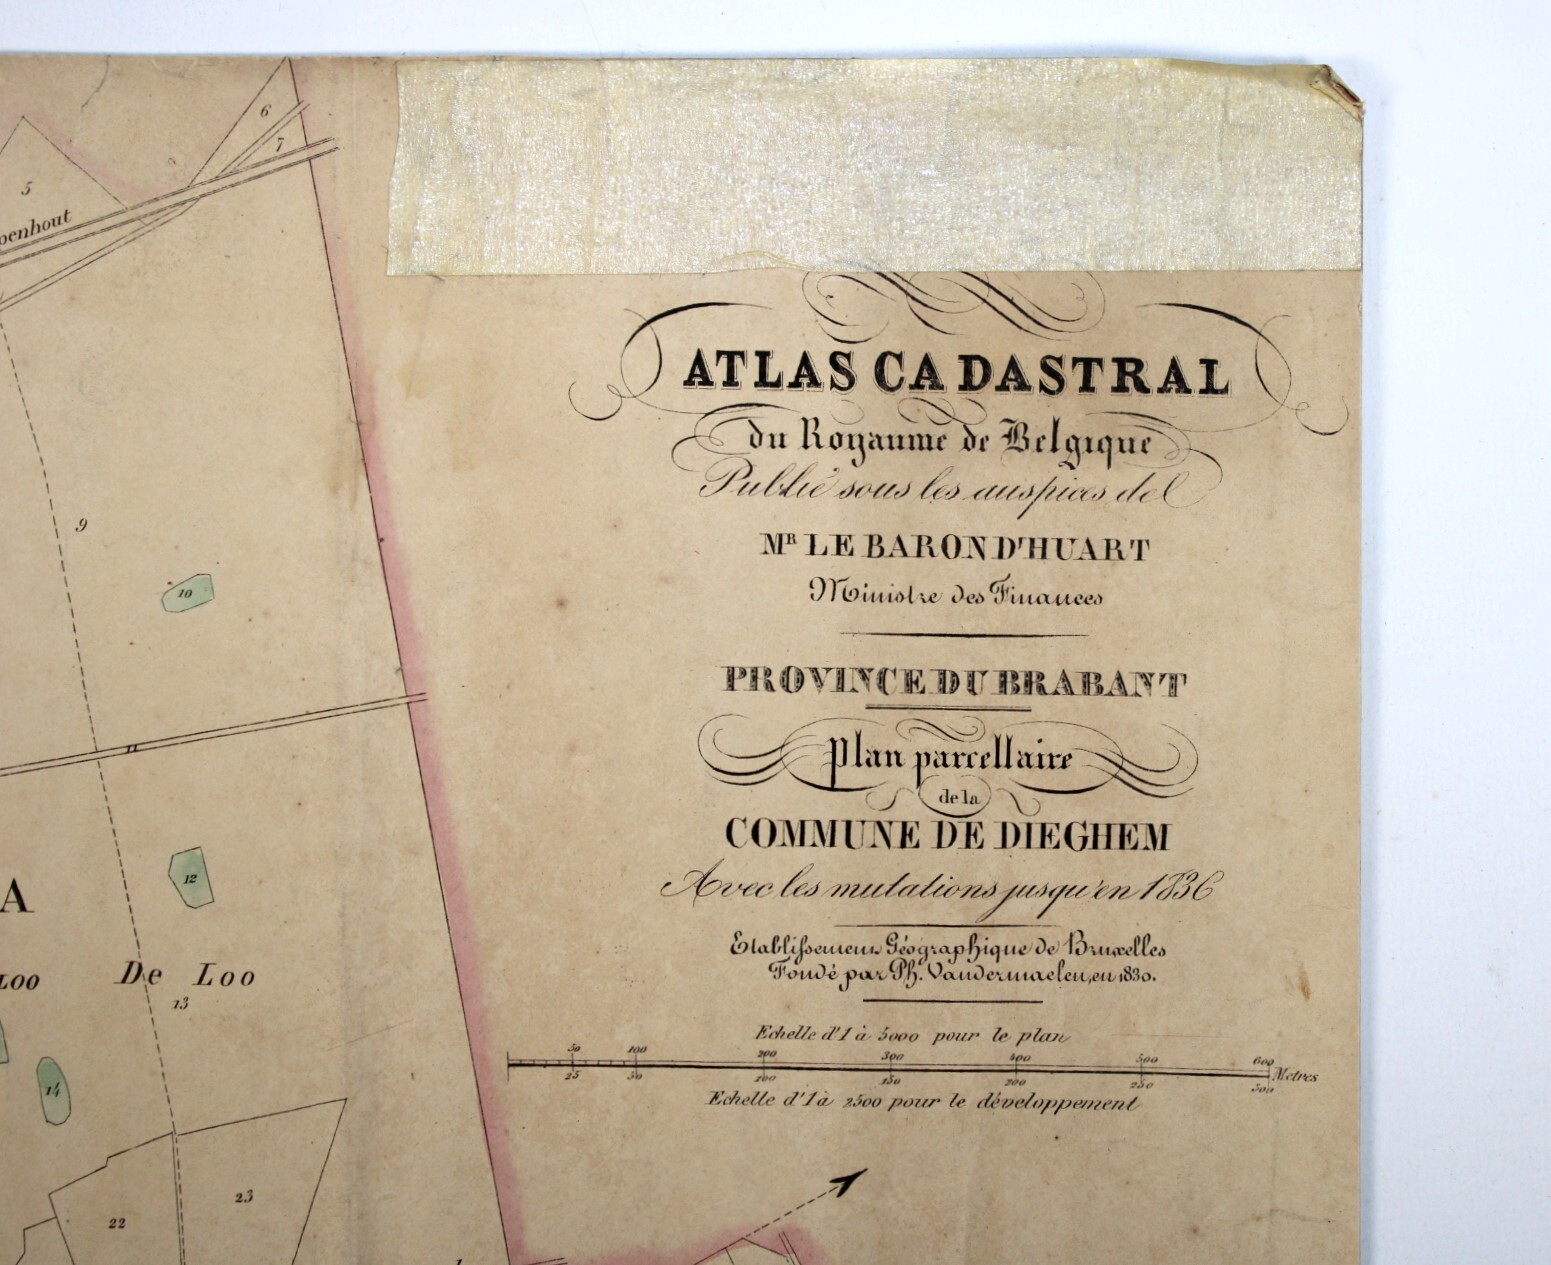 6
7
5
penhout
ATLAS CADASTRAL
du Royaume de Belgique
Publié sous les auspices de
MR LE BARON D'HUART
Ministre des Finances
PROVINCE DU BRABANT
Plan parcellaire
de la
COMMUNE DE DIEGHEM
Avec les mutations jusqu'en 1836
Etablissement Géographique de Bruxelles
Fondé par Ph. Vandermaelen, en 1830.
Echelle d'1 à 5000 pour le plan
50 100 200 300 400 500 600
Metres
25 50 100 150 200 250 300
Echelle d'1 à 2500 pour le développement
9
10
11
12
A
LOO De Loo
13
14
23
22